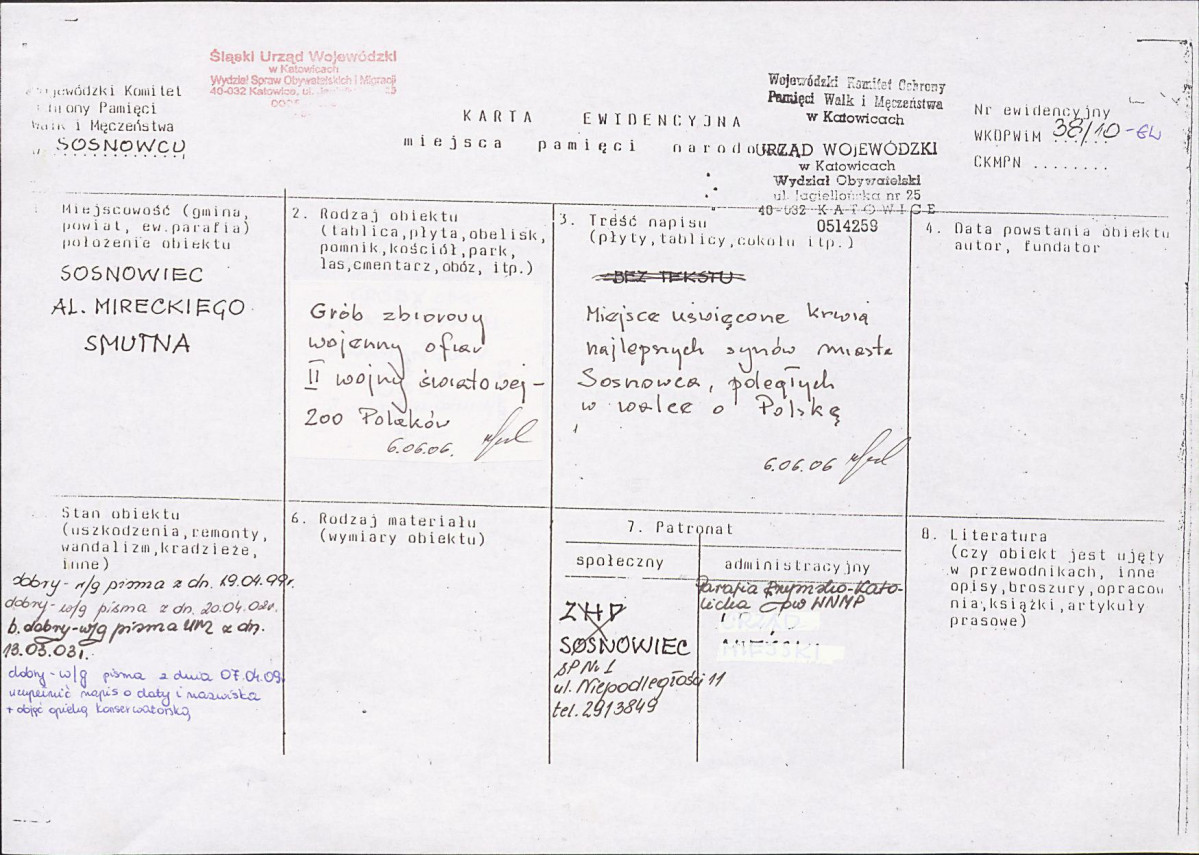 Śląski Urząd Wojewódzki
w Katowicach
Wydział Spraw Obywatelskich i Migracji
40-032 Katowice, ul. 25
Komitet
Pamięci
i Męczeństwa
SOSNOWCU
KARTA EWIDENCYJNA
miejsca pamięci
Wojewódzki Komitet Ochrony
Pamięci Walk i Męczeństwa
w Katowicach
URZĄD WOJEWÓDZKI
w Katowicach
Wydział Obywatelski
ul. Jagiellońska nr 25
40-032 KATOWICE
0514259
Nr ewidencyjny
WKOPWiM 38/10 - GW
CKMPN ........
Miejscowość (gmina,
powiat, ew.parafia)
położenie obiektu
SOSNOWIEC
AL. MIRECKIEGO
SMUTNA
2. Rodzaj obiektu
(tablica,płyta,obelisk,
pomnik,kościół,park,
las,cmentarz,obóz, itp.)
Grób zbiorowy
wojenny ofiar
II wojny światowej -
200 Polaków
6.06.06.
3. Treść napisu
(płyty,tablicy,cokołu itp.)
BEZ TEKSTU
Miejsce uświęcone krwią
najlepszych synów miasta
Sosnowca, poległych
w walce o Polskę
6.06.06
4. Data powstania obiektu
autor, fundator
Stan obiektu
(uszkodzenia,remonty,
wandalizm,kradzieże,
inne)
dobry - w/g pisma z dn. 19.04.99r.
dobry - w/g pisma z dn. 20.04.02r.
b. dobry - w/g pisma UM z dn.
13.03.03r.
dobry - w/g pisma z dnia 07.04.09
uzupełnić napis o daty i nazwiska
+ objąć opieką konserwatorską
6. Rodzaj materiału
(wymiary obiektu)
7. Patronat
społeczny
ZHP
SOSNOWIEC
SP Nr 1
ul. Niepodległości 11
tel. 2913849
administracyjny
Parafia Rzymsko-Kato-
licka pw WNMP
URZĄD
MIEJSKI
8. Literatura
(czy obiekt jest ujęty
w przewodnikach, inne
opisy,broszury,opracow
nia,książki,artykuły
prasowe)